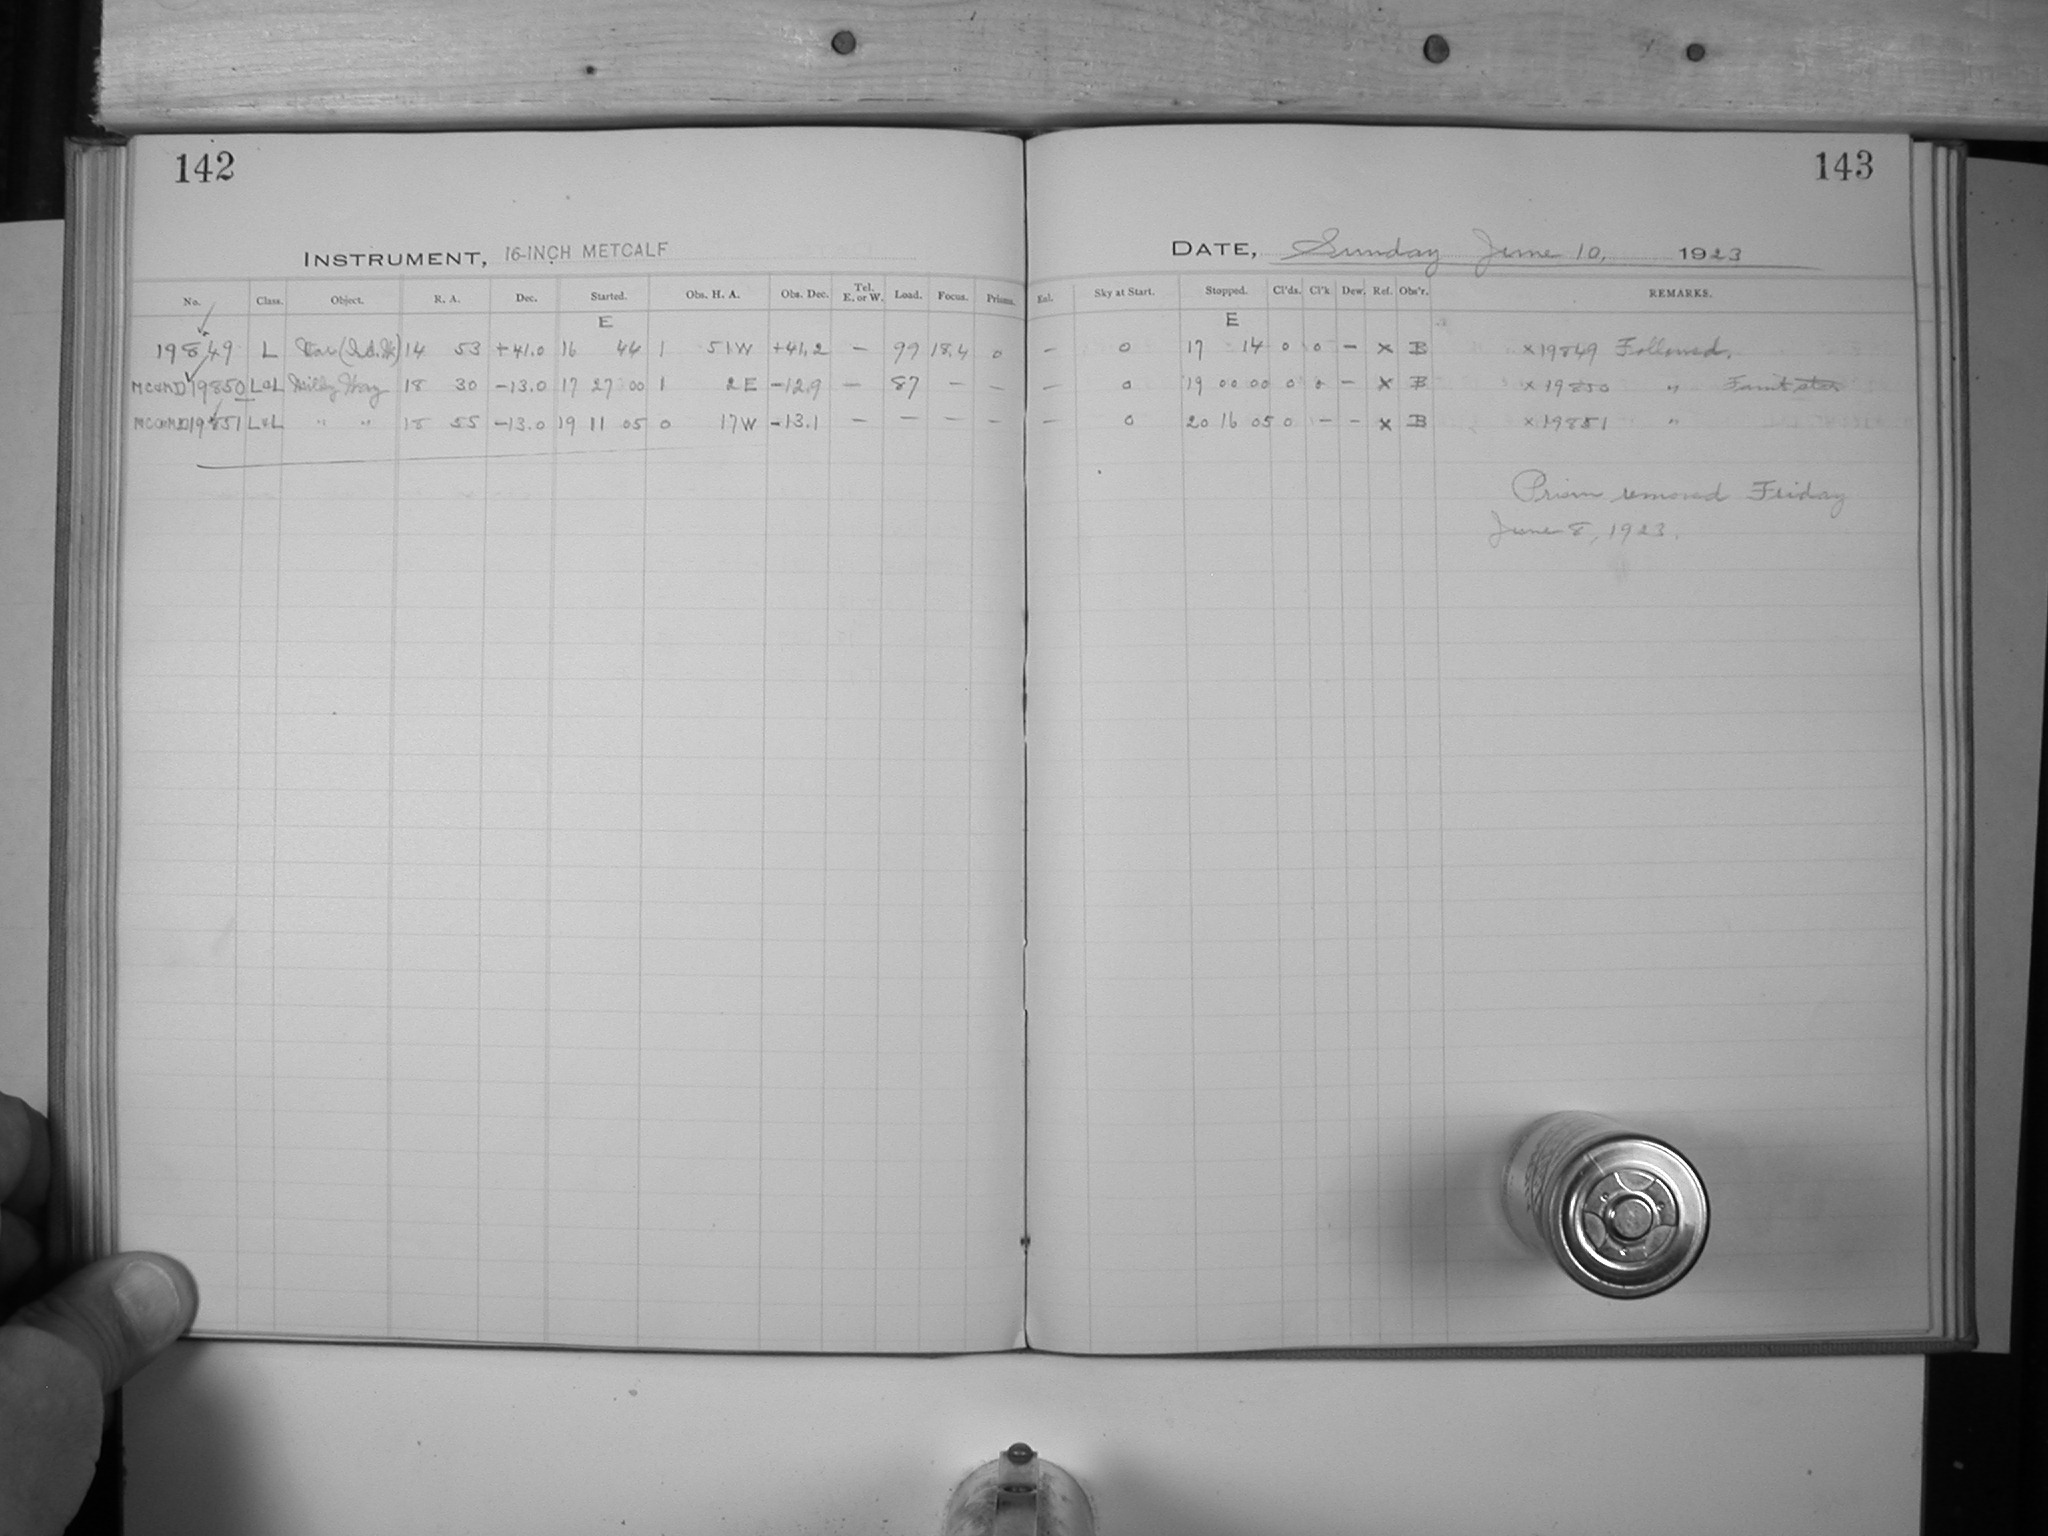 142
INSTRUMENT, 16-INCH METCALF
No. Class. Object. R. A. Dec. Started. Obs. H. A. Obs. Dec. Tel. E. or W. Load. Focus. Prisms.
E
19849 L 14 53 +41.0 16 44 1 51W +41.2 — 99 18.4 0
19850 L&L Milky Way 18 30 –13.0 17 27 00 1 2 E –12.9 — 87 — —
19851 L&L " " 18 55 –13.0 19 11 05 0 17W –13.1 — — — —
143
DATE, Sunday June 10, 1923
Exl. Sky at Start. Stopped. Cl'ds. Cl'k Dew. Ref. Obs'r. REMARKS.
E
— 0 17 14 0 0 – x B x 19849 Followed.
— 0 19 00 00 0 0 – x B x 19850 " Faint star
— 0 20 16 05 0 – – x B x 19851 "
Prism removed Friday
June 8, 1923.